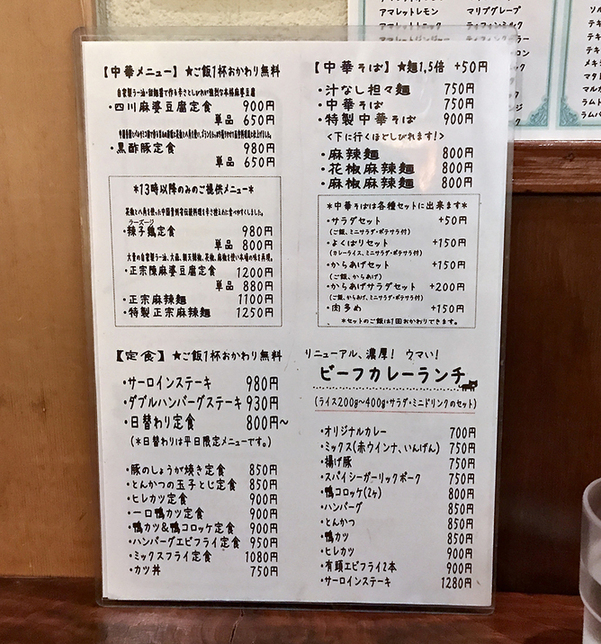 アマレットレモン
アマレットミルク
アマレットジンジャー
マリブグレープ
ティフィンミルク
【中華メニュー】★ご飯1杯おかわり無料
・四川麻婆豆腐定食 900円
単品 650円
・黒酢豚定食 980円
単品 650円
*13時以降のみのご提供メニュー*
ラーズージ
・辣子鶏定食 980円
単品 800円
・正宗陳麻婆豆腐定食 1200円
単品 880円
・正宗麻辣麺 1100円
・特製正宗麻辣麺 1250円
【定食】★ご飯1杯おかわり無料
・サーロインステーキ 980円
・ダブルハンバーグステーキ 930円
・日替わり定食 800円~
(*日替わりは平日限定メニューです。)
・豚のしょうが焼き定食 850円
・とんかつの玉子とじ定食 850円
・ヒレカツ定食 900円
・一口鴨カツ定食 900円
・鴨カツ&鴨コロッケ定食 900円
・ハンバーグエビフライ定食 950円
・ミックスフライ定食 1080円
・カツ丼 750円
【中華そば】★麺1,5倍 +50円
・汁なし担々麺 750円
・中華そば 750円
・特製中華そば 900円
<下に行くほどしびれます!>
・麻辣麺 800円
・花椒麻辣麺 800円
・麻椒麻辣麺 800円
*中華そばは各種セットに出来ます*
・サラダセット +50円
(ご飯、ミニサラダ・ポテサラ付)
・よくばりセット +150円
(カレーライス、ミニサラダ・ポテサラ付)
・からあげセット +150円
(ご飯、からあげ)
・からあげサラダセット +200円
(ご飯、からあげ、ミニサラダ・ポテサラ付)
・肉多め +150円
*セットのご飯は1回おかわりできます。
リニューアル、濃厚! ウマい!
ビーフカレーランチ
(ライス200g~400g・サラダ・ミニドリンクのセット)
・オリジナルカレー 700円
・ミックス(赤ウインナ、いんげん) 750円
・揚げ豚 750円
・スパイシーガーリックポーク 750円
・鴨コロッケ(2ヶ) 800円
・ハンバーグ 850円
・とんかつ 850円
・鴨カツ 850円
・ヒレカツ 900円
・有頭エビフライ2本 900円
・サーロインステーキ 1280円